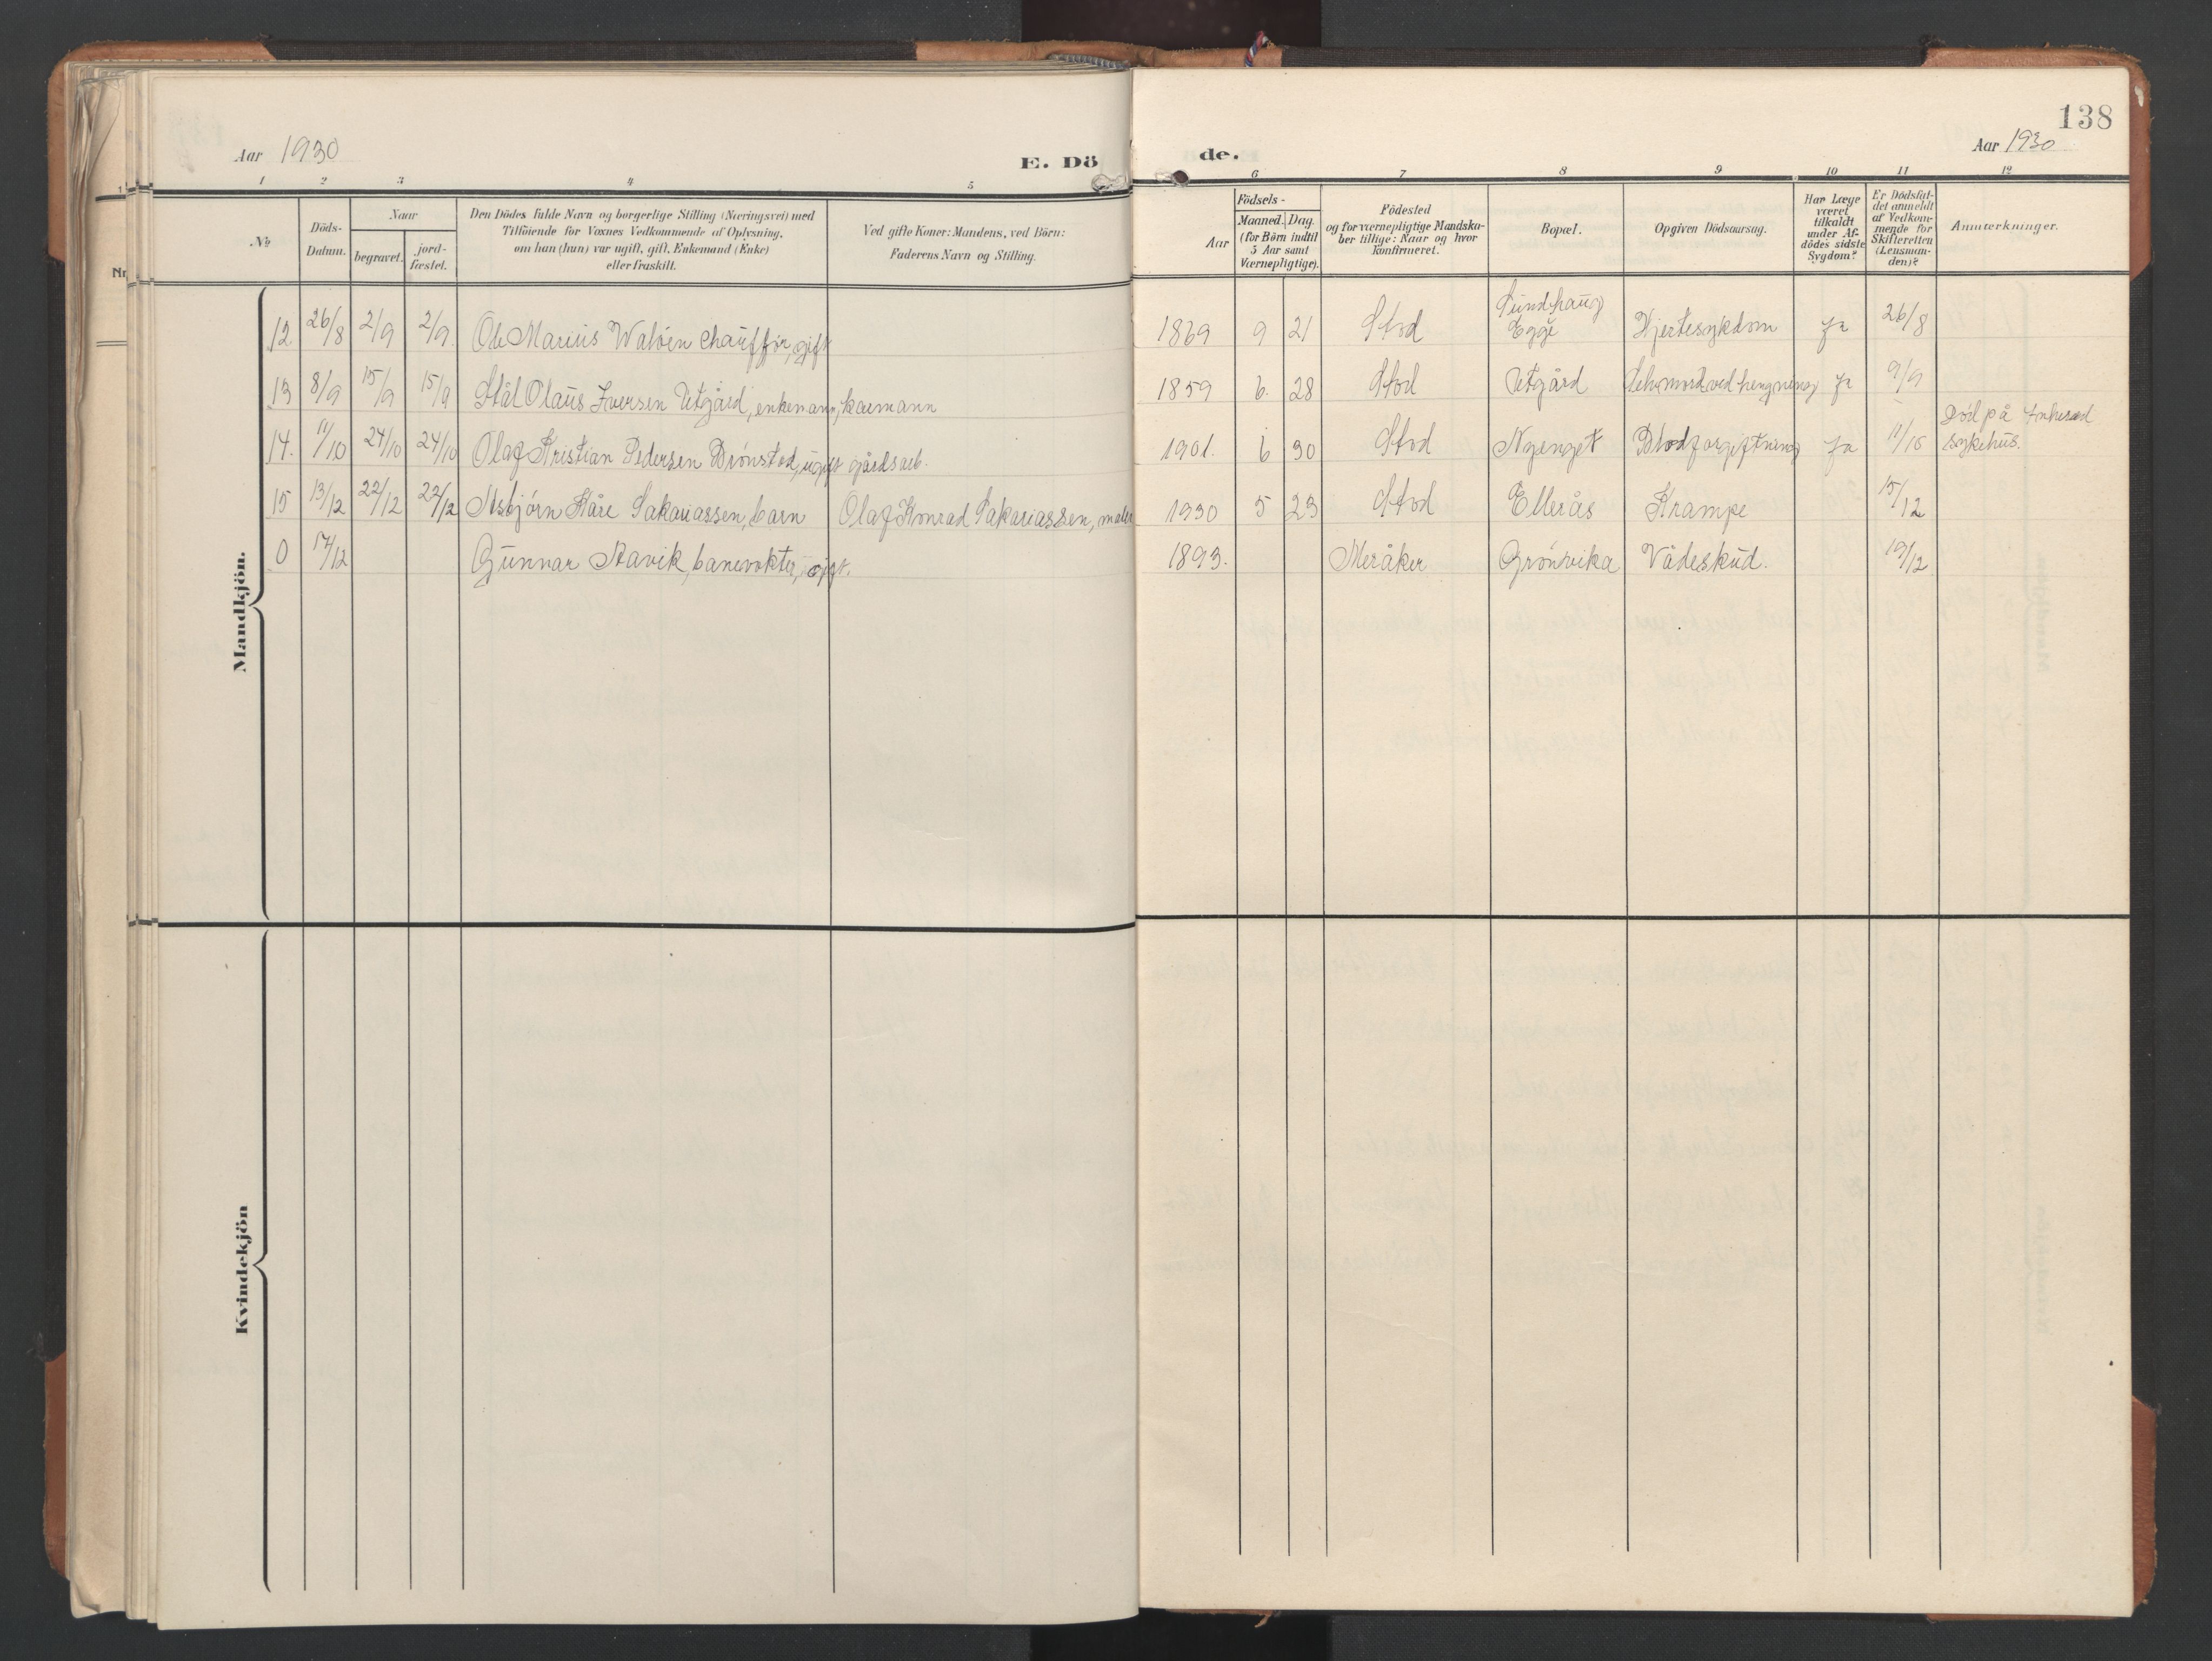 138
Aar 1930
E. Dö
de.
Aar 1930
1 2 3 4 5
6 7 8 9 10 11 12
№
Döds-
Datum.
Naar
begravet.
jord-
fæstet.
Den Dödes fulde Navn og borgerlige Stilling (Næringsvei) med
Tilföiende for Voxnes Vedkommende af Oplysning,
om han (hun) var ugift, gift, Enkemand (Enke)
eller fraskilt.
Ved gifte Koner: Mandens, ved Börn:
Faderens Navn og Stilling.
Födsels-
Aar
Maaned. Dag.
(for Börn indtil
5 Aar samt
Værnepligtige).
Födested
og for værnepligtige Mandska-
ber tillige: Naar og hvor
konfirmeret.
Bopæl.
Opgiven Dödsaarsag.
Har Læge
været
tilkaldt
under Af-
dödes sidste
Sygdom?
Er Dödsfal-
det anmeldt
af Vedkom-
mende for
Skifteretten
(Lensman-
den)?
Anmærkninger.
Mandkjön.
12. 26/8 2/9 2/9. Ole Marius Waløen chauffør, gift 1869 9 21 Stod Sundhaug Egge Hjertesykdom ja 26/8
13 8/9 15/9 15/9 Olaus Iversen Utgård, enkemann, kaarmann 1859 6. 28 Stod Utgård Selvmord ved hengning ja 9/9
14. 11/10 24/10 24/10 Olaf Kristian Pedersen Brønstad, ugift gårdsarb. 1901. 6 30 Stod Nyenget Blodforgiftning ja 11/10 Død på Innherred sykehus.
15 13/12 22/12 22/12 Asbjørn Kåre Sakariassen, barn Olaf Konrad Sakariassen, maler 1930 5 23 Stod Ellerås Krampe 15/12
0 17/12 Gunnar Stavik, banevokter, gift. 1893. Meråker Grønvika Vådeskud. 19/12
Kvindekjön
Nr.